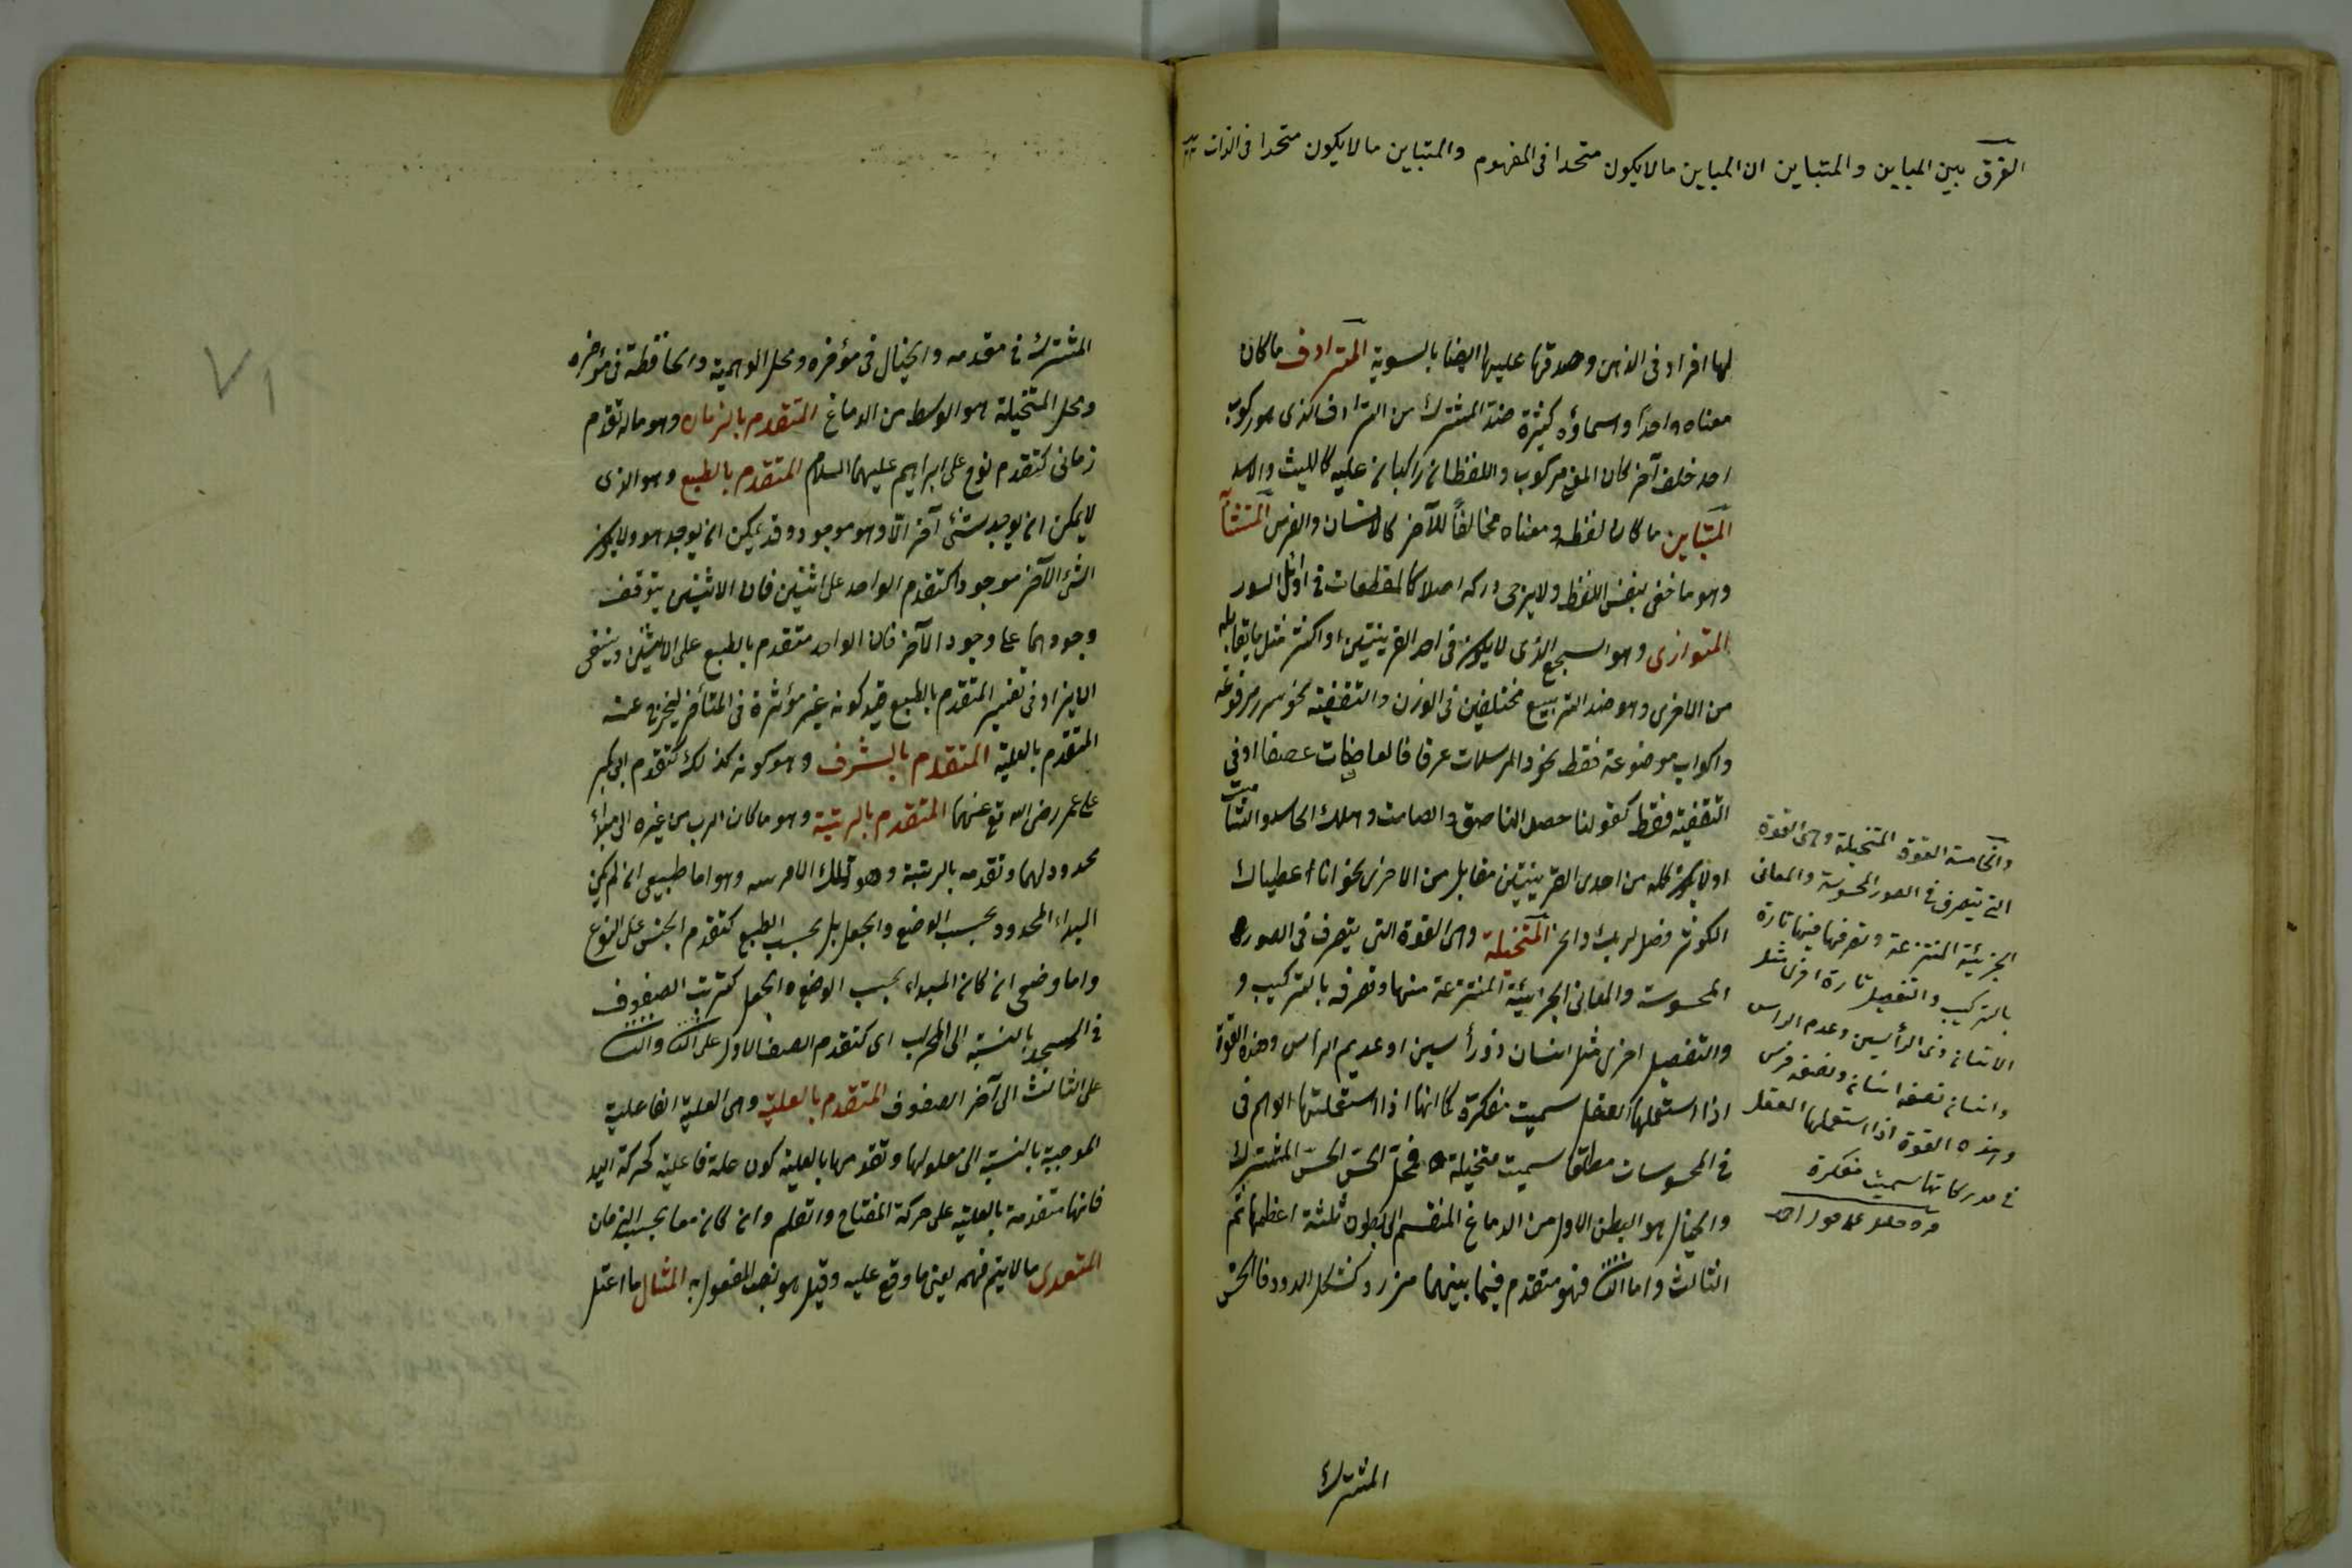 الفرق بين المباين والمتباين ان المباين ما لا يكون متحدا فى المفهوم والمتباين ما لا يكون متحدا فى الذات
لها افراد فى الذهن وصدقها عليها ايضا بالسوية المترادف ما كان
معناه واحدا واسماؤه كثيرة ضد المشترك من الترادف الذى هو ركوب
احد خلف آخر كان المعنى مركوب واللفظان راكبان عليه كالليث والاسد
المتباين ما كان لفظه ومعناه مخالفاً للآخر كالانسان والفرس المتشا
وهو ما خفى بنفس اللفظ ولا يرجى دركه اصلا كالمقطعات فى اوائل السور
المتوازى وهو السجع الذى لا يكون فى احد القرينتين او اكثر مثل ما يقابله
من الاخرى وهو ضد الترصيع مختلفين فى الوزن والتقفية نحو سرر مرفوعة
واكواب موضوعة فقط نحو والمرسلات عرفا فالعاصفات عصفا او فى
التقفية فقط كقولنا حصل الناطق والصامت وهلك الحاسد والشامت
او لا يكون كلمة من احدى القرينتين مقابل من الاخرى نحو انا اعطيناك
الكوثر فصل لربك وانحر المتخيلة وهى القوة التى يتصرف فى الصور
المحسوسة والمعانى الجزئية المنتزعة منها وتصرفه بالتركيب و
والتفصيل اخرى مثل انسان ذو رأسين او عديم الرأس وهذه القوة
اذا استعملها العقل سميت مفكرة كما انها اذا استعملتها الوهم فى
فى المحسوسات مطلقا سميت متخيلة فمحل الحس الحس المشترك
والخيال هو البطن الاول من الدماغ المنقسم الى بطون ثلثة اعظمها ثم
الثالث واما الثانى فهو متقدم فيما بينهما مزرد كشكل الدود فالحس
المشترك
والخامسة القوة المتخيلة وهى القوة
التى يتصرف فى الصور المحسوسة والمعانى
الجزئية المنتزعة وتصرفها فيها تارة
بالتركيب والتفصيل تارة اخرى مثل
الانسان ذى الرأسين وعدم الراس
وانسان نصفه انسان ونصفه فرس
وهذه القوة اذا استعملها العقل
فى مدركاتها سميت مفكرة
المشترك فى مقدمه والخيال فى مؤخره ومحل الوهمية والحافظة فى مؤخره
ومحل المتخيلة هو الوسط من الدماغ المتقدم بالزمان وهو ما له تقدم
زمانى كتقدم نوح على ابراهيم عليهما السلام المتقدم بالطبع وهو الذى
لا يمكن ان يوجد شئ آخر الا وهو موجود وقد يمكن ان يوجد هو ولا يكون
الشئ الآخر موجودا كتقدم الواحد على اثنين فان الاثنين يتوقف
وجودهما على وجود الآخر فان الواحد متقدم بالطبع على الاثنين وينبغى
ان يزاد فى تفسير المتقدم بالطبع قيد كونه غير مؤثرة فى المتأخر ليخرج عنه
المتقدم بالعلية المتقدم بالشرف وهو كونه كذلك كتقدم ابى بكر
على عمر رضى الله تع عنهما المتقدم بالرتبة وهو ما كان اقرب من غيره الى مبدأ
محدود لهما وتقدمه بالرتبة وهو تلك وهو اما طبيعى ان لم يكن
المبداء المحدود بحسب الوضع والجعل بل بحسب الطبع كتقدم الجنس على النوع
واما وضعى ان كان المبداء بحسب الوضع والجعل كترتب الصفوف
فى المسجد بالنسبة الى المحراب اى كتقدم الصف الاول على الثانى والثانى
على الثالث الى آخر الصفوف المتقدم بالعلية وهى العلية الفاعلية
الموجبة بالنسبة الى معلولها وتقومها بالعلية كون علة فاعلية كحركة اليد
فانها متقدمة بالعلية على حركة المفتاح والقلم وان كان معا بحسب الزمان
المتعدى ما لا يتم فهمه بغير ما وقع عليه وقيل هو نصب المفعول به المثال ما اعتل
٧١